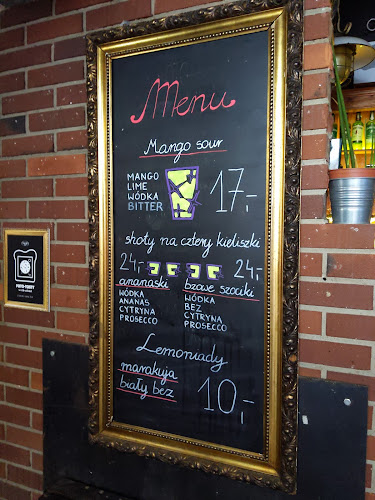 Menu
Mango sour
MANGO
LIME
WÓDKA
BITTER
17,-
shoty na cztery kieliszki
24,-
ananaski
WÓDKA
ANANAS
CYTRYNA
PROSECCO
24,-
bzowe szociki
WÓDKA
BEZ
CYTRYNA
PROSECCO
Lemoniady
marakuja
biały bez
10,-